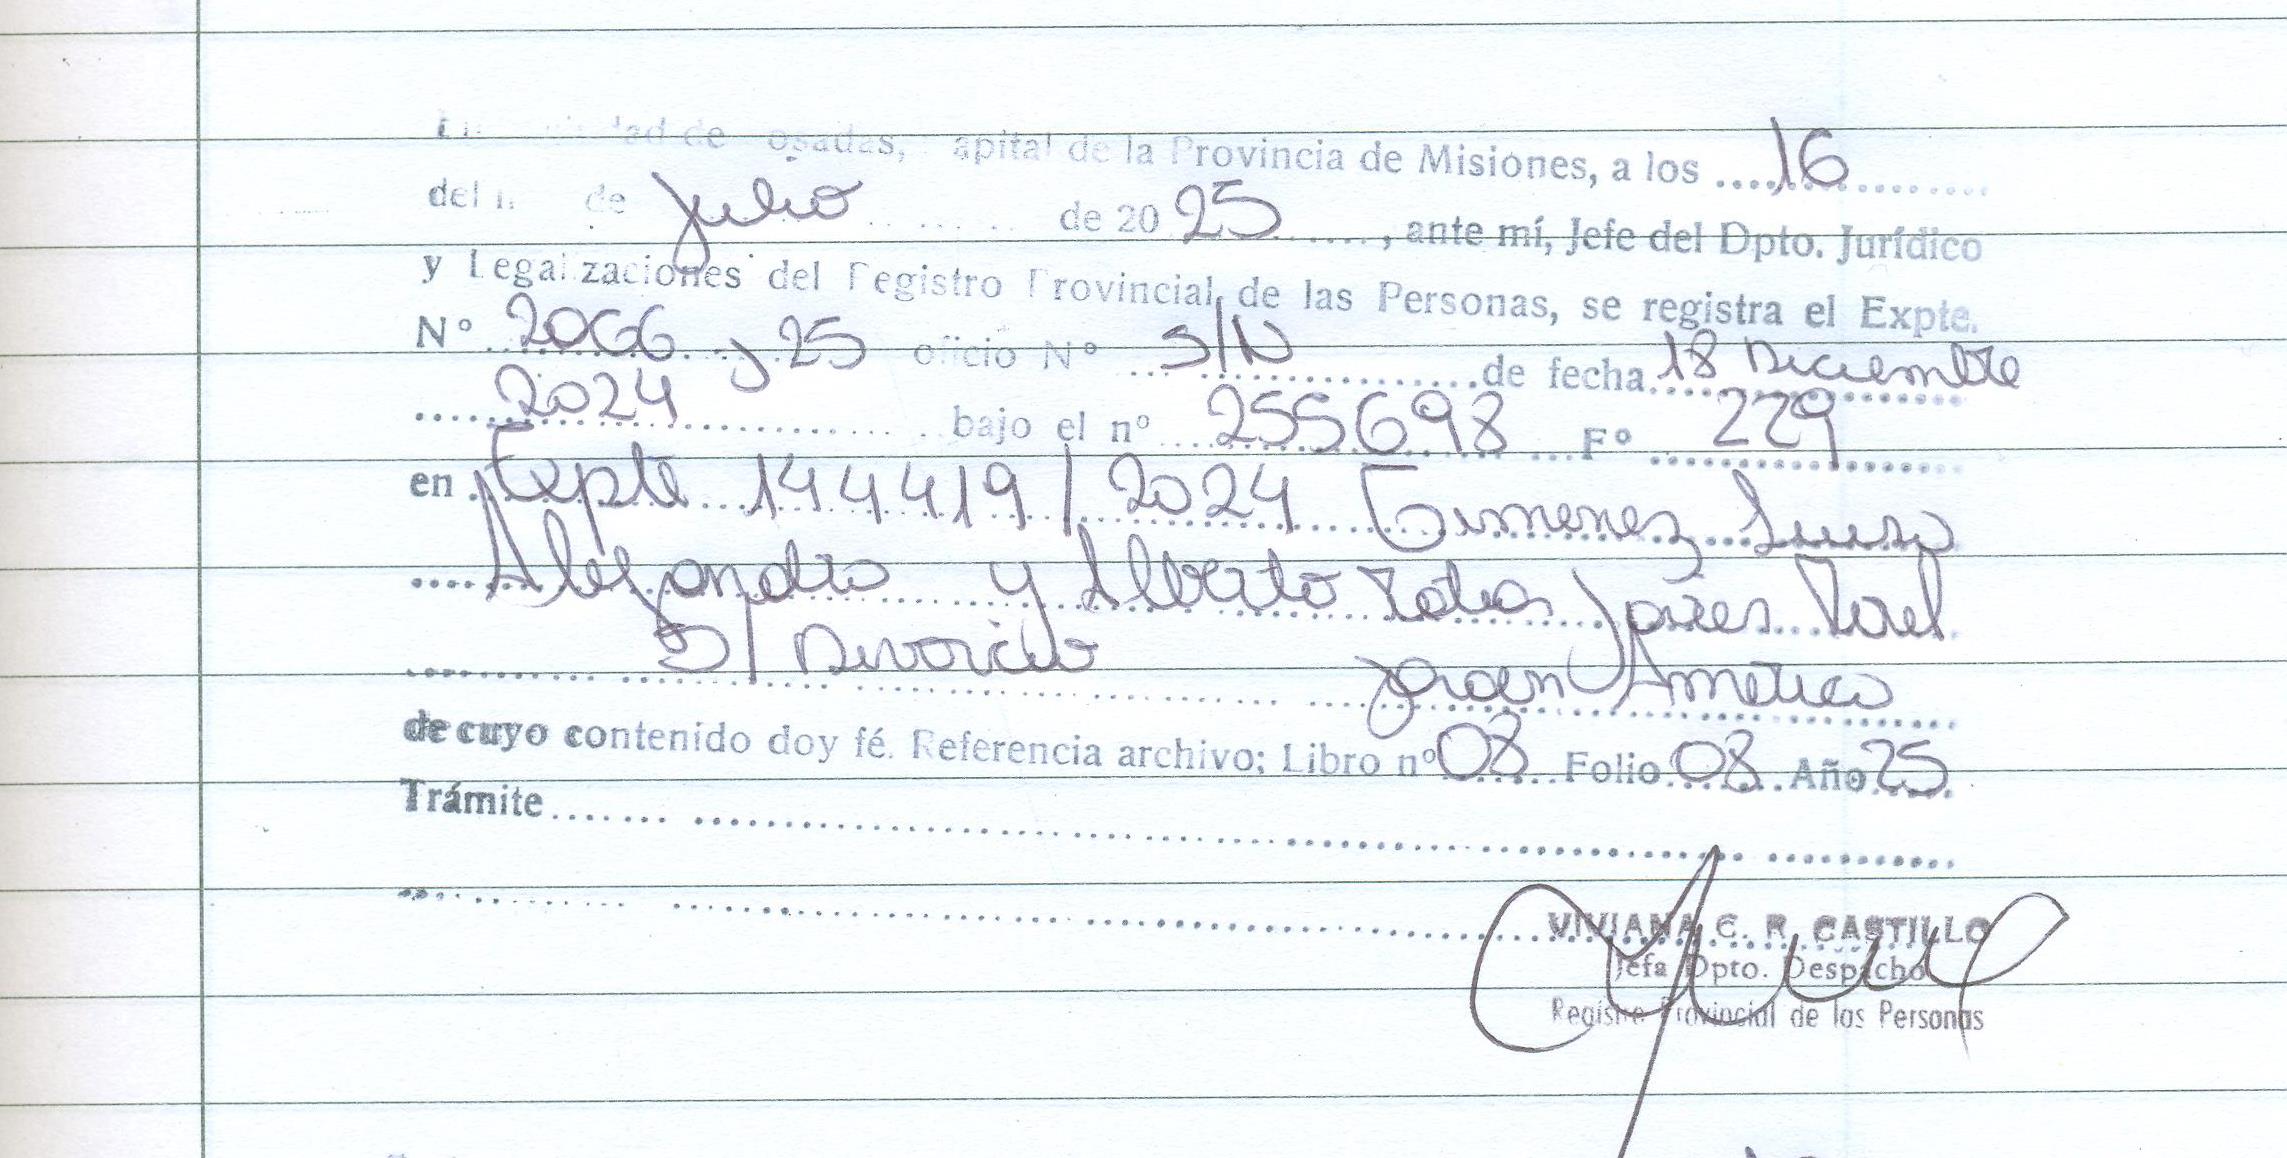 dad de osadas, apital de la Provincia de Misiones, a los 16
del de julio de 20 25, ante mí, Jefe del Dpto. Jurídico
y Legalizaciones del Registro Provincial de las Personas, se registra el Expte.
N° 2066 25 oficio N° S/N de fecha 18 Diciembre
2024 bajo el n° 255698 F° 229
en Expte 144419/2024 Gimenez
Alejandro y Alberto
S/ Divorcio Americo
de cuyo contenido doy fé. Referencia archivo; Libro n° 08 Folio 08 Año 25
Trámite
VIVIANA C. R. CASTILLO
Jefa Dpto. Despacho
Registro Provincial de las Personas